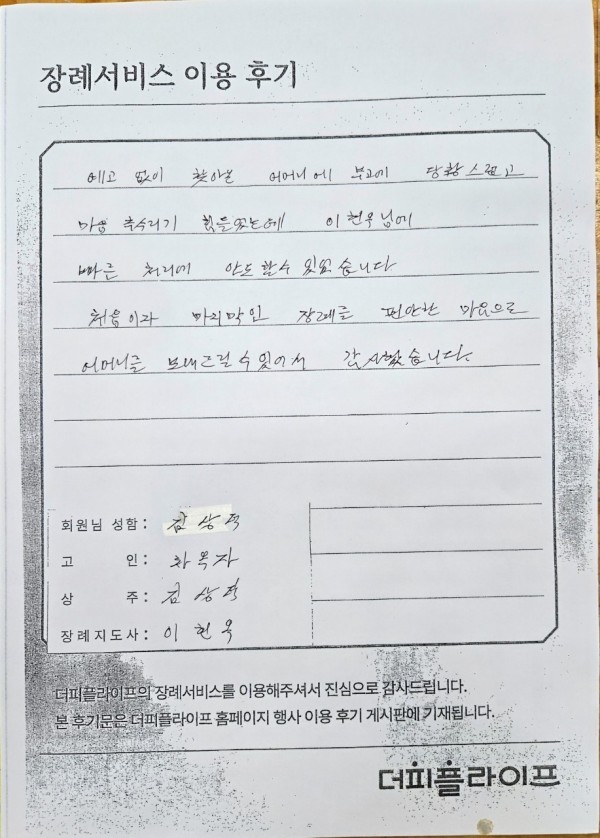 장례서비스 이용 후기
예고 없이 찾아온 어머니에 부고에 당황스럽고
마음 추수리기 힘들었는데 이현우님에
빠른 처리에 안도할수 있었습니다
처음이자 마지막인 장례를 편안한 마음으로
어머니를 보내드릴수있어서 감사했습니다.
회원님 성함: 김상
고 인: 옥자
상 주: 김상
장례지도사: 이현
더피플라이프의 장례서비스를 이용해주셔서 진심으로 감사드립니다.
본 후기문은 더피플라이프 홈페이지 행사 이용 후기 게시판에 기재됩니다.
더피플라이프